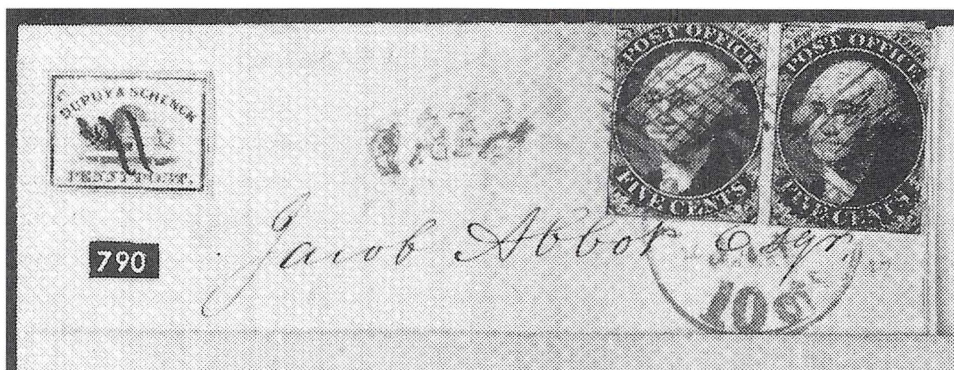 DUPUY & SCHENCK
PENNY POST.
POST OFFICE
FIVE CENTS
POST OFFICE
FIVE CENTS
790
Jacob Abbot Esqr.
10 cts